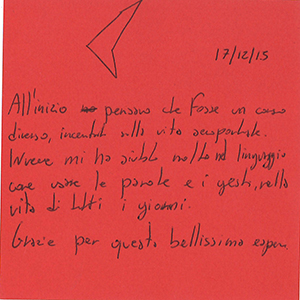 17/12/15
All'inizio pensavo che fosse un corso
diverso, incentrato sulla vita aeroportuale.
Invece mi ha aiutato molto nel linguaggio
come usare le parole e i gesti, nella
vita di tutti i giorni.
Grazie per questa bellissima esper.